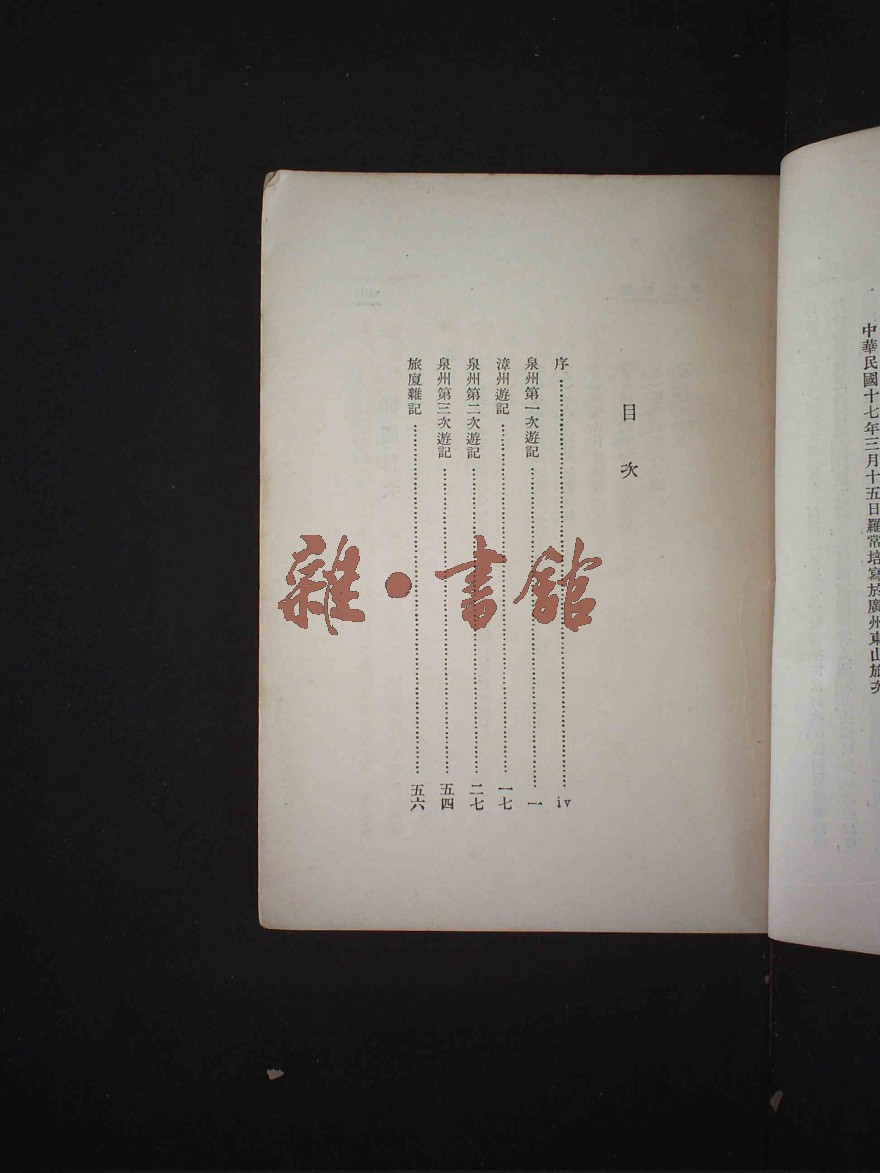 中華民國十七年三月十五日羅常培寫於廣州東山旅次
目次
序……iv
泉州第一次遊記……一
漳州遊記……一七
泉州第二次遊記……二七
泉州第三次遊記……五四
旅廈雜記……五六
雜·書館